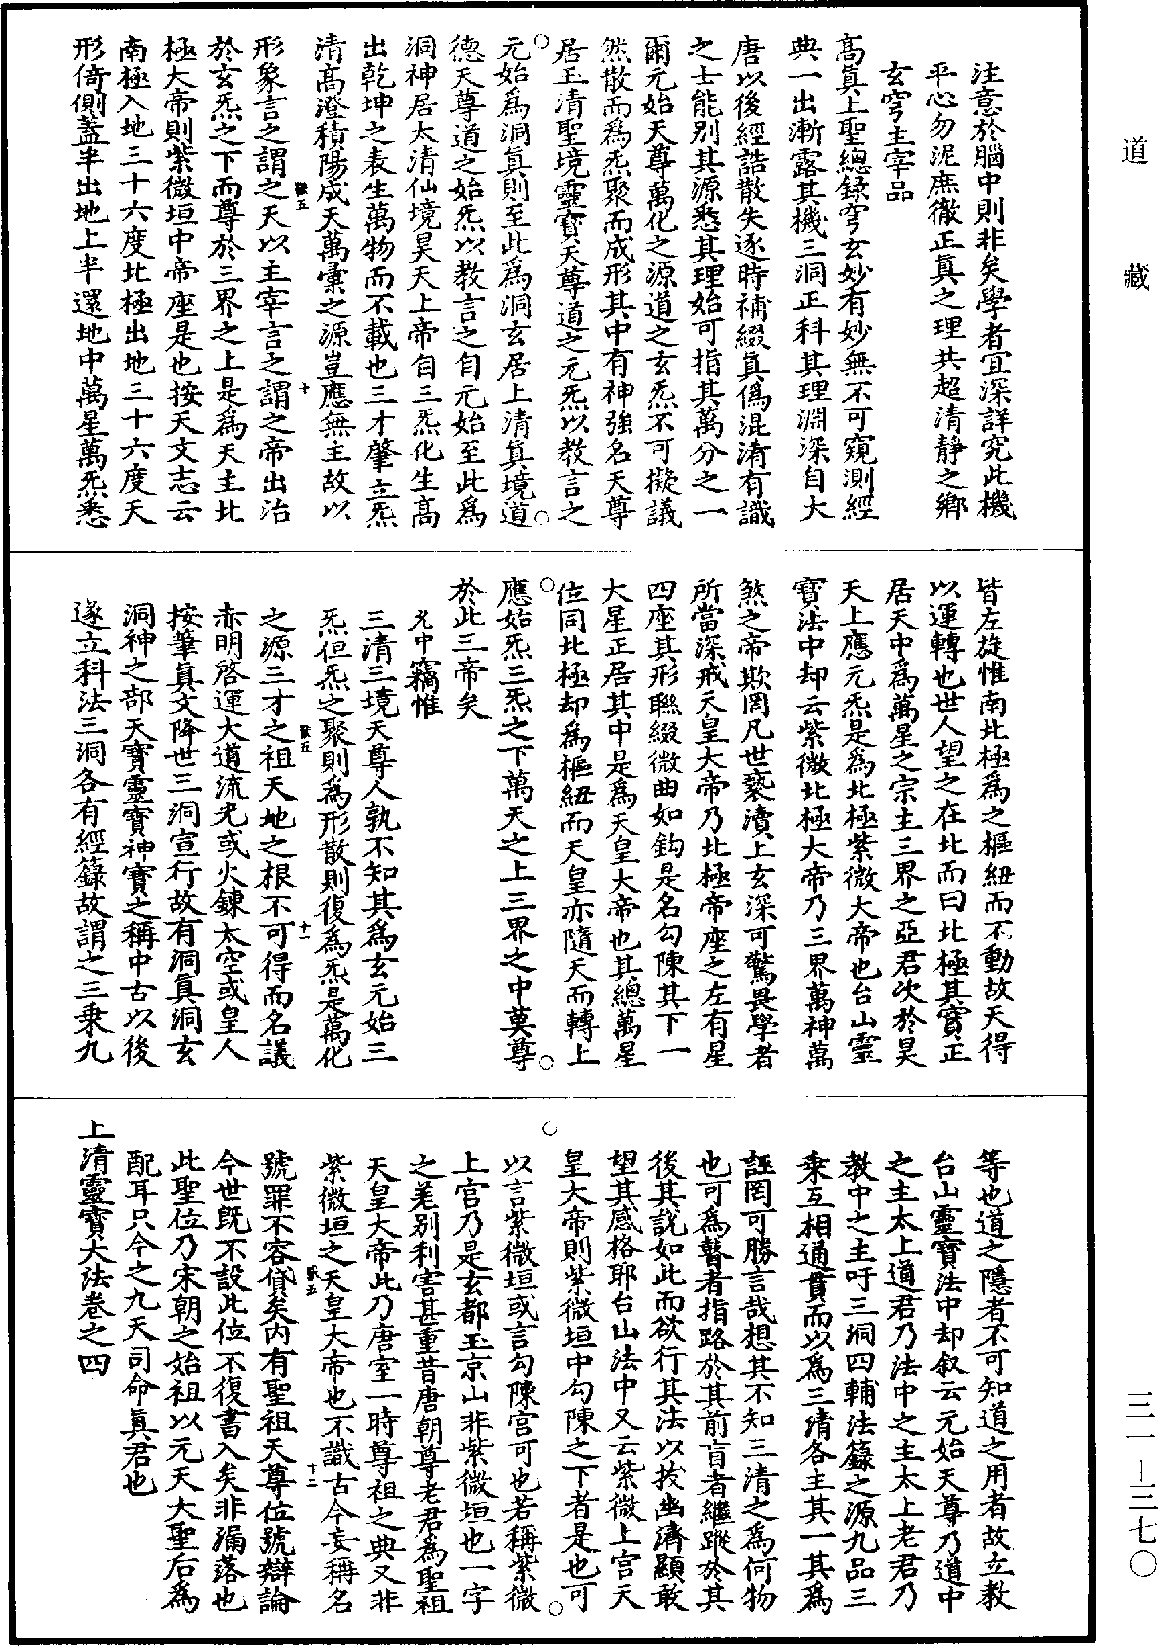 道藏
注意於腦中則非矣學者宜深詳究此機
平心勿泥庶徹正真之理共超清靜之鄉
玄穹主宰品
高真上聖總錄穹玄妙有妙無不可窺測經
典一出漸露其機三洞正科其理淵深自大
唐以後經誥散失逐時補綴真偽混淆有識
之士能別其源悉其理始可指其萬分之一
爾元始天尊萬化之源道之玄炁不可擬議
然散而為炁聚而成形其中有神強名天尊
居玉清聖境靈寶天尊道之元炁以教言之
元始為洞真則至此為洞玄居上清真境道
德天尊道之始炁以教言之自元始至此為
洞神居太清仙境昊天上帝自三炁化生高
出乾坤之表生萬物而不載也三才肇立炁
清高澄積陽成天萬彙之源豈應無主故以
形象言之謂之天以主宰言之謂之帝出治
於玄炁之下而尊於三界之上是為天主北
極大帝則紫微垣中帝座是也按天文志云
南極入地三十六度北極出地三十六度天
形倚側蓋半出地上半還地中萬星萬炁悉
皆左旋惟南北極為之樞紐而不動故天得
以運轉也世人望之在北而曰北極其實正
居天中為萬星之宗主三界之亞君次於昊
天上應元炁是為北極紫微大帝也台山靈
寶法中却云紫微北極大帝乃三界萬神萬
煞之帝欺罔凡世褻瀆上玄深可驚畏學者
所當深戒天皇大帝乃北極帝座之左有星
四座其形聯綴微曲如鈎是名勾陳其下一
大星正居其中是為天皇大帝也其總萬星
位同北極却為樞紐而天皇亦隨天而轉上
應始炁三炁之下萬天之上三界之中莫尊
於此三帝矣
允中竊惟
三清三境天尊人孰不知其為玄元始三
炁但炁之聚則為形散則復為炁是萬化
之源三才之祖天地之根不可得而名議
赤明啓運大道流光或火鍊太空或皇人
按筆真文降世三洞宣行故有洞真洞玄
洞神之部天寶靈寶神寶之稱中古以後
遂立科法三洞各有經籙故謂之三乗九
等也道之隱者不可知道之用者故立教
台山靈寶法中却叙云元始天尊乃道中
之主太上道君乃法中之主太上老君乃
教中之主吁三洞四輔法籙之源九品三
乗互相通貫而以為三清各主其一其為
誣罔可勝言哉想其不知三清之為何物
也可為瞽者指路於其前盲者繼蹤於其
後其說如此而欲行其法以拔幽濟顯敢
望其感格耶台山法中又云紫微上宮天
皇大帝則紫微垣中勾陳之下者是也可
以言紫微垣或言勾陳宮可也若稱紫微
上宮乃是玄都玉京山非紫微垣也一字
之差別利害甚重昔唐朝尊老君為聖祖
天皇大帝此乃唐室一時尊祖之典又非
紫微垣之天皇大帝也不識古今妄稱名
號罪不容貸矣內有聖祖天尊位號辯論
今世旣不設此位不復書入矣非漏落也
此聖位乃宋朝之始祖以元天大聖后為
配耳只今之九天司命真君也
上清靈寶大法卷之四
三一-三七〇